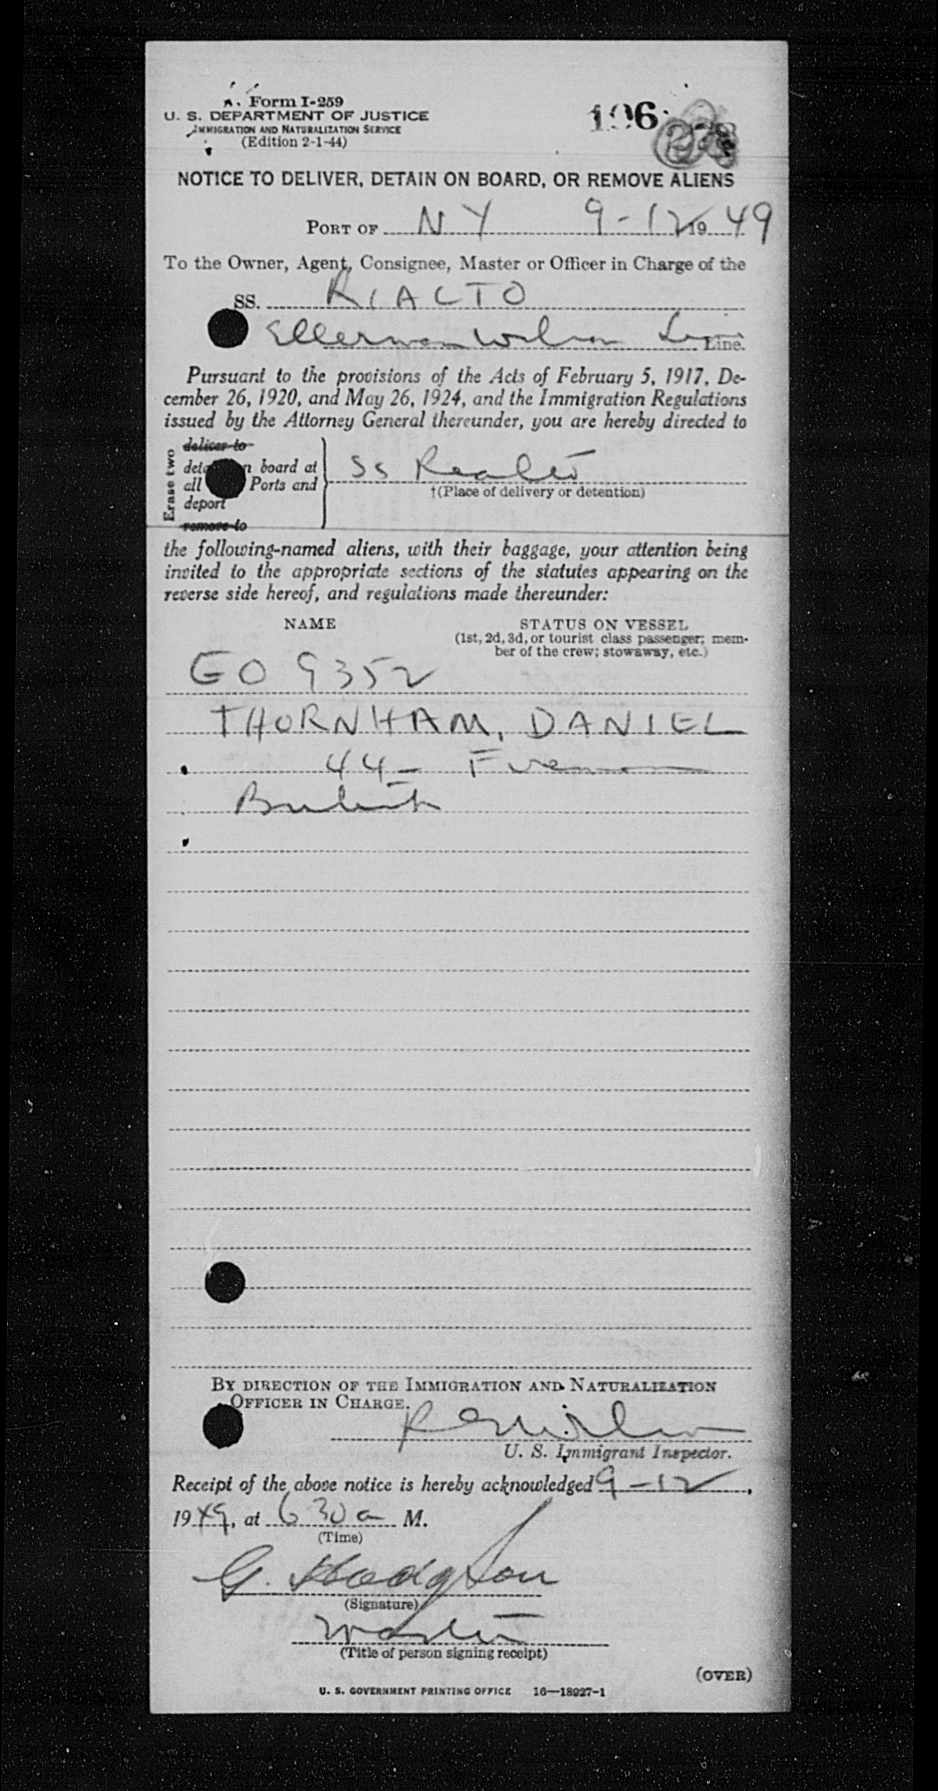 Form I-259
U. S. DEPARTMENT OF JUSTICE
IMMIGRATION AND NATURALIZATION SERVICE
(Edition 2-1-44)
196
NOTICE TO DELIVER, DETAIN ON BOARD, OR REMOVE ALIENS
PORT OF NY 9-12 1949
To the Owner, Agent, Consignee, Master or Officer in Charge of the
SS. RIALTO
Ellerman Wilson Line Line.
Pursuant to the provisions of the Acts of February 5, 1917, De-
cember 26, 1920, and May 26, 1924, and the Immigration Regulations
issued by the Attorney General thereunder, you are hereby directed to
Erase two
deliver to
board at
all Ports and
deport
remove to
SS Rialto
†(Place of delivery or detention)
the following-named aliens, with their baggage, your attention being
invited to the appropriate sections of the statutes appearing on the
reverse side hereof, and regulations made thereunder:
NAME STATUS ON VESSEL
(1st, 2d, 3d, or tourist class passenger; mem-
ber of the crew; stowaway, etc.)
GO 9352
THORNHAM, DANIEL
44- Fireman
British
BY DIRECTION OF THE IMMIGRATION AND NATURALIZATION
OFFICER IN CHARGE.
U. S. Immigrant Inspector.
Receipt of the above notice is hereby acknowledged 9-12,
1949, at 6 30 a M.
(Time)
G. Hodgson
(Signature)
Master
(Title of person signing receipt)
(OVER)
U. S. GOVERNMENT PRINTING OFFICE 16—18927-1